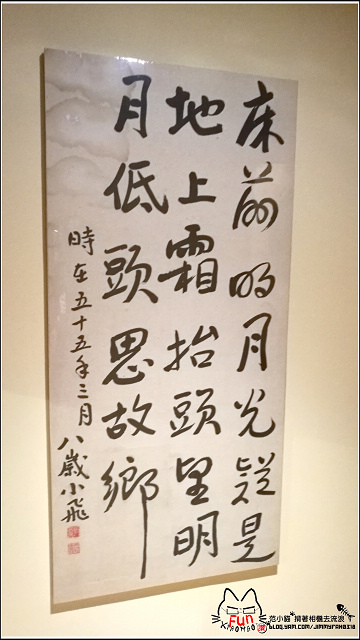 床前明月光疑是
地上霜抬頭望明
月低頭思故鄉
時在五十五年三月八歲小飛
FUN
范小貓*揹著相機去流浪